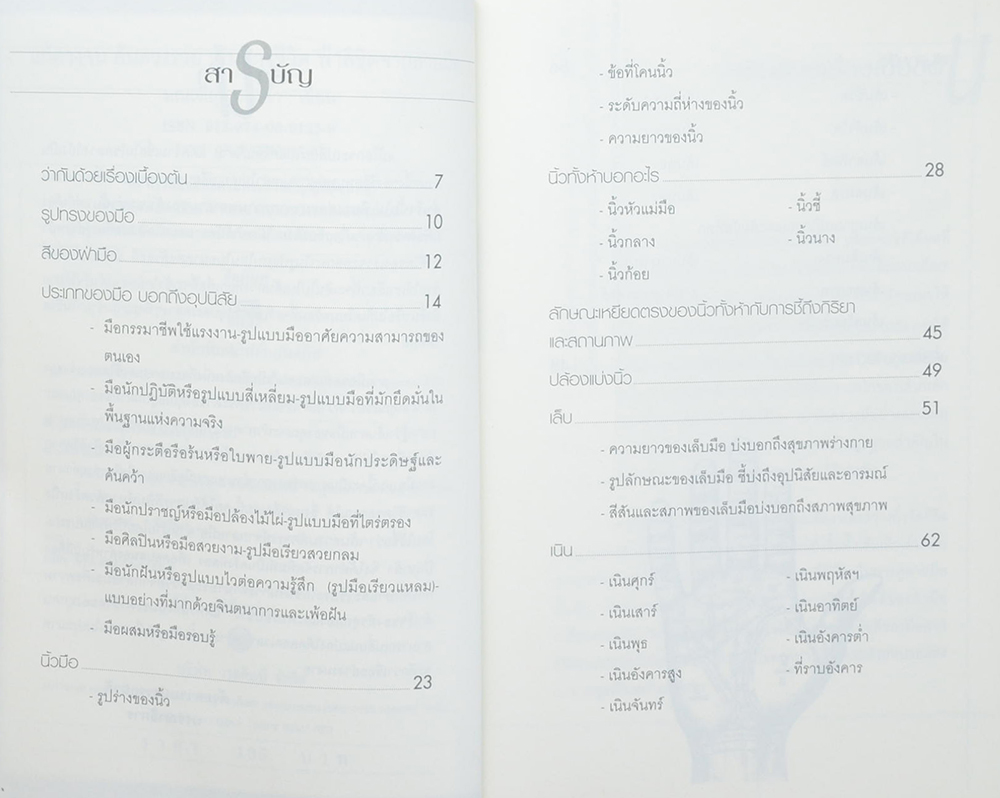 สารบัญ
ว่ากันด้วยเรื่องเบื้องต้น 7
รูปทรงของมือ 10
สีของฝ่ามือ 12
ประเภทของมือ บอกถึงอุปนิสัย 14
- มือกรรมาชีพใช้แรงงาน-รูปแบบมืออาศัยความสามารถของ
ตนเอง
- มือนักปฏิบัติหรือรูปแบบสี่เหลี่ยม-รูปแบบมือที่มักยึดมั่นใน
พื้นฐานแห่งความจริง
- มือผู้กระตือรือร้นหรือใบพาย-รูปแบบมือนักประดิษฐ์และ
ค้นคว้า
- มือนักปราชญ์หรือมือปล้องไม้ไผ่-รูปแบบมือที่ไตร่ตรอง
- มือศิลปินหรือมือสวยงาม-รูปมือเรียวสวยกลม
- มือนักฝันหรือรูปแบบไวต่อความรู้สึก (รูปมือเรียวแหลม)-
แบบอย่างที่มากด้วยจินตนาการและเพ้อฝัน
- มือผสมหรือมือรอบรู้
นิ้วมือ 23
- รูปร่างของนิ้ว
- ข้อที่โคนนิ้ว
- ระดับความถี่ห่างของนิ้ว
- ความยาวของนิ้ว
นิ้วทั้งห้าบอกอะไร 28
- นิ้วหัวแม่มือ - นิ้วชี้
- นิ้วกลาง - นิ้วนาง
- นิ้วก้อย
ลักษณะเหยียดตรงของนิ้วทั้งห้ากับการชี้ถึงกิริยา
และสถานภาพ 45
ปล้องแบ่งนิ้ว 49
เล็บ 51
- ความยาวของเล็บมือ บ่งบอกถึงสุขภาพร่างกาย
- รูปลักษณะของเล็บมือ ชี้บ่งถึงอุปนิสัยและอารมณ์
- สีสันและสภาพของเล็บมือบ่งบอกถึงสภาพสุขภาพ
เนิน 62
- เนินศุกร์ - เนินพฤหัสฯ
- เนินเสาร์ - เนินอาทิตย์
- เนินพุธ - เนินอังคารต่ำ
- เนินอังคารสูง - ที่ราบอังคาร
- เนินจันทร์